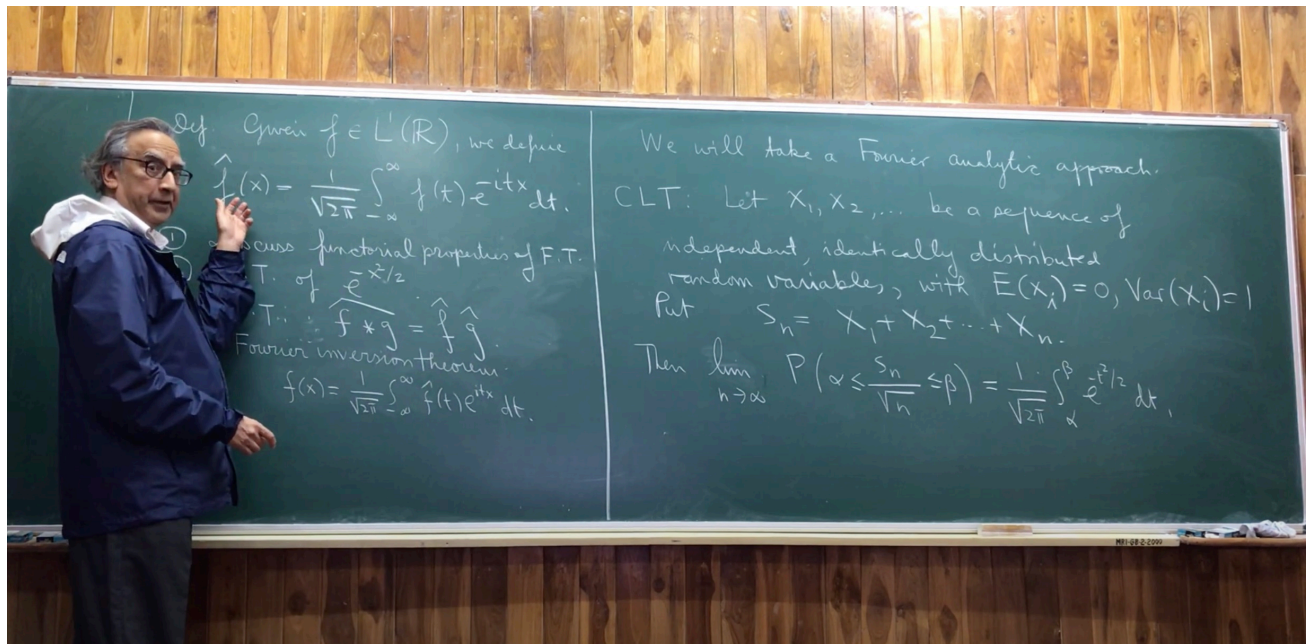 Def. Given f ∈ L¹(ℝ), we define
f̂(x) = 1/√2π ∫_{-∞}^{∞} f(t) e^{-itx} dt.
① functorial properties of F.T.
T. of e^{-x²/2}
T.: \widehat{f * g} = f̂ ĝ.
Fourier inversion theorem.
f(x) = 1/√2π ∫_{-∞}^{∞} f̂(t) e^{itx} dt.
We will take a Fourier analytic approach.
CLT: Let X₁, X₂, ... be a sequence of
independent, identically distributed
random variables, with E(X_i) = 0, Var(X_i) = 1
Put S_n = X₁ + X₂ + ... + X_n.
Then lim_{n→∞} P(α ≤ S_n/√n ≤ β) = 1/√2π ∫_α^β e^{-t²/2} dt.
MRI-GB-2-2009